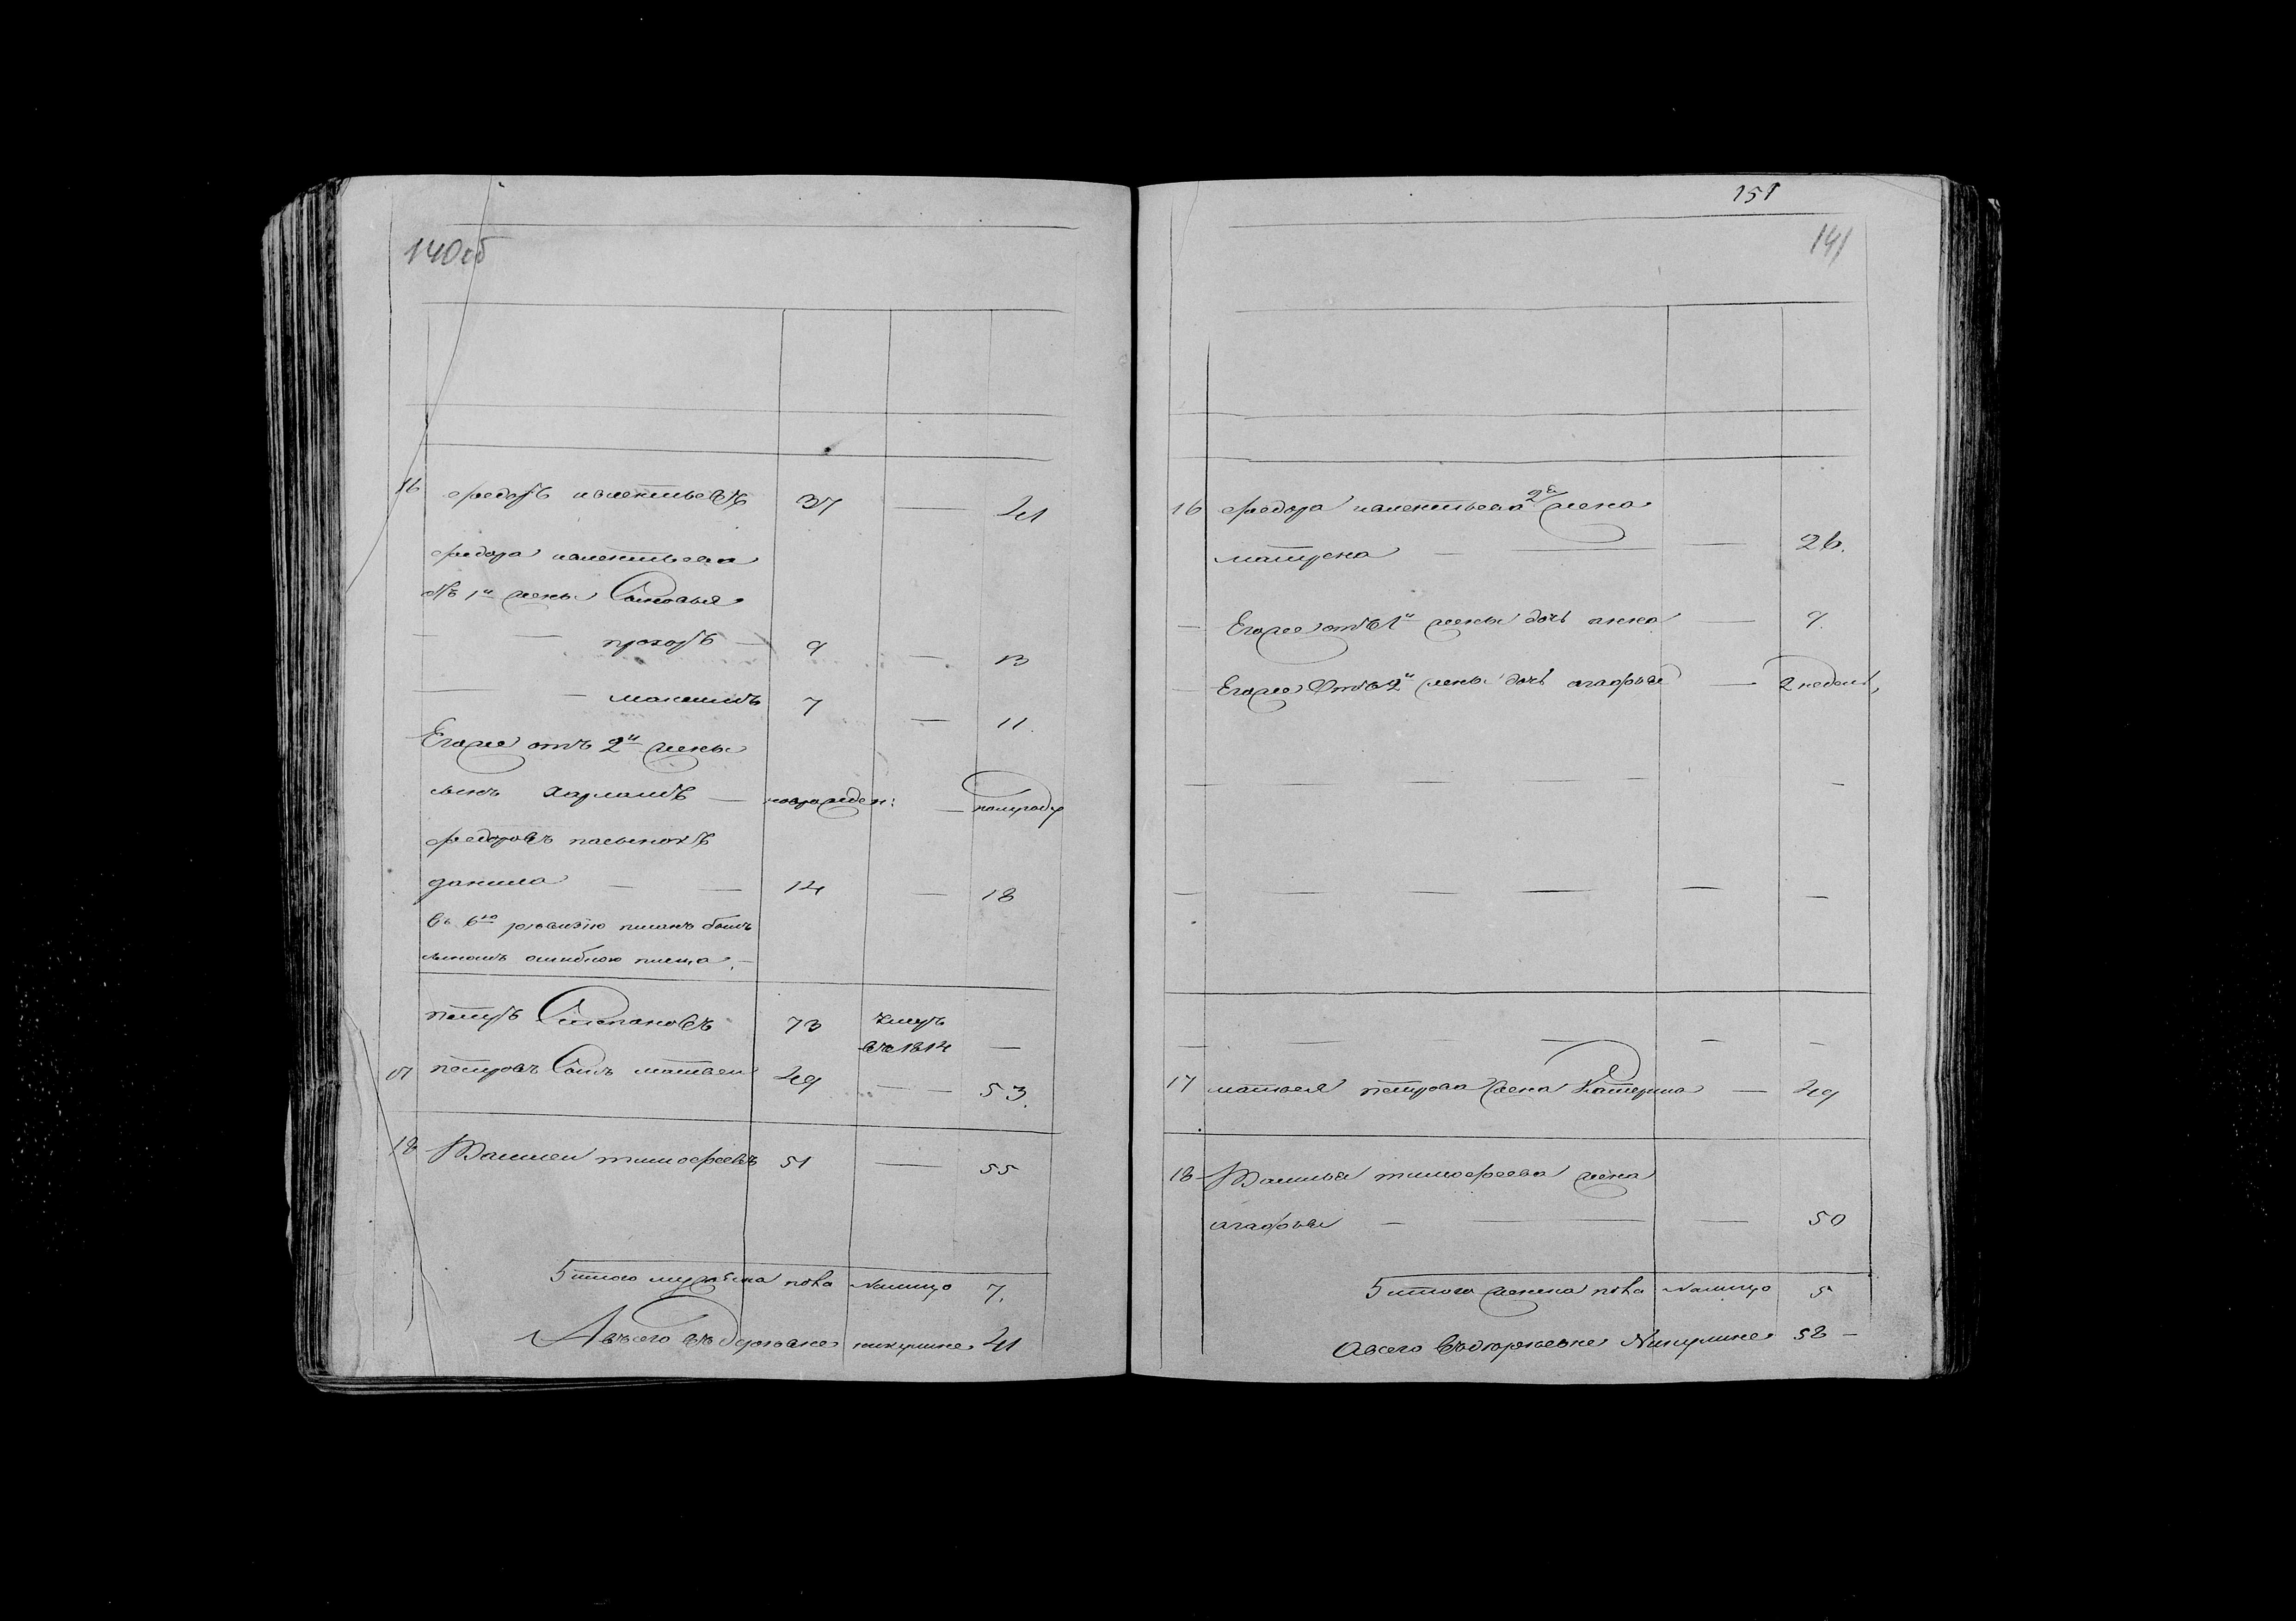 140об
16 федоръ иолентьевъ 37 — 41
федора иолентьева
отъ 1й жены Сыновья
— — прохоръ — 9 — 13
— — максимъ 7 — 11.
Егоже отъ 2й жены
сынъ Харламъ — новорожден: — полугоду
федоровъ пасынокъ
данила — — 14 — 18
въ 6ю ревизию писанъ былъ
сыномъ ошибкою писца.
петръ Степановъ 73 умеръ
въ 1814 —
17 петровъ Сынъ матвей 49 — 53.
18 Василей тимофеевъ 51 — 55
5 итого мужеска пола налицо 7.
А всего въ деревне никулине 41
151
141
16 федора иолентьева 2я жена
матрена — — — 26.
— Егоже отъ 1й жены дочь анна — 9.
— Егоже Отъ 2й жены дочь агафья — 2 недели,
— — — — — —
— — — — — —
— — — — — —
17 матвея петрова жена Катерина — 49
18 Василья тимофеева жена
агафья — — — 50
5 итого женска пола налицо 5
Авсего въ деревне Никулине 58 —